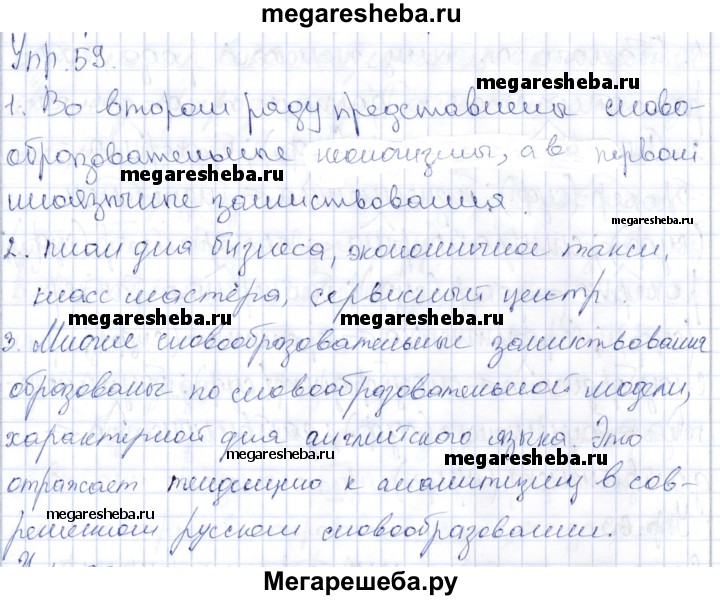 megaresheba.ru
Упр. 59.
megaresheba.ru
1. Во втором ряду представлены слово-
образовательные неологизмы, а в первом
megaresheba.ru
иноязычные заимствования.
megaresheba.ru
2. план для бизнеса, экономичное такси,
класс мастера, сервисный центр.
megaresheba.ru megaresheba.ru
3. Многие словообразовательные заимствования
образованы по словообразовательной модели,
характерной для английского языка. Это
megaresheba.ru megaresheba.ru
отражает тенденцию к аналитизму в сов-
megaresheba.ru
ременном русском словообразовании.
Мегарешеба.ру